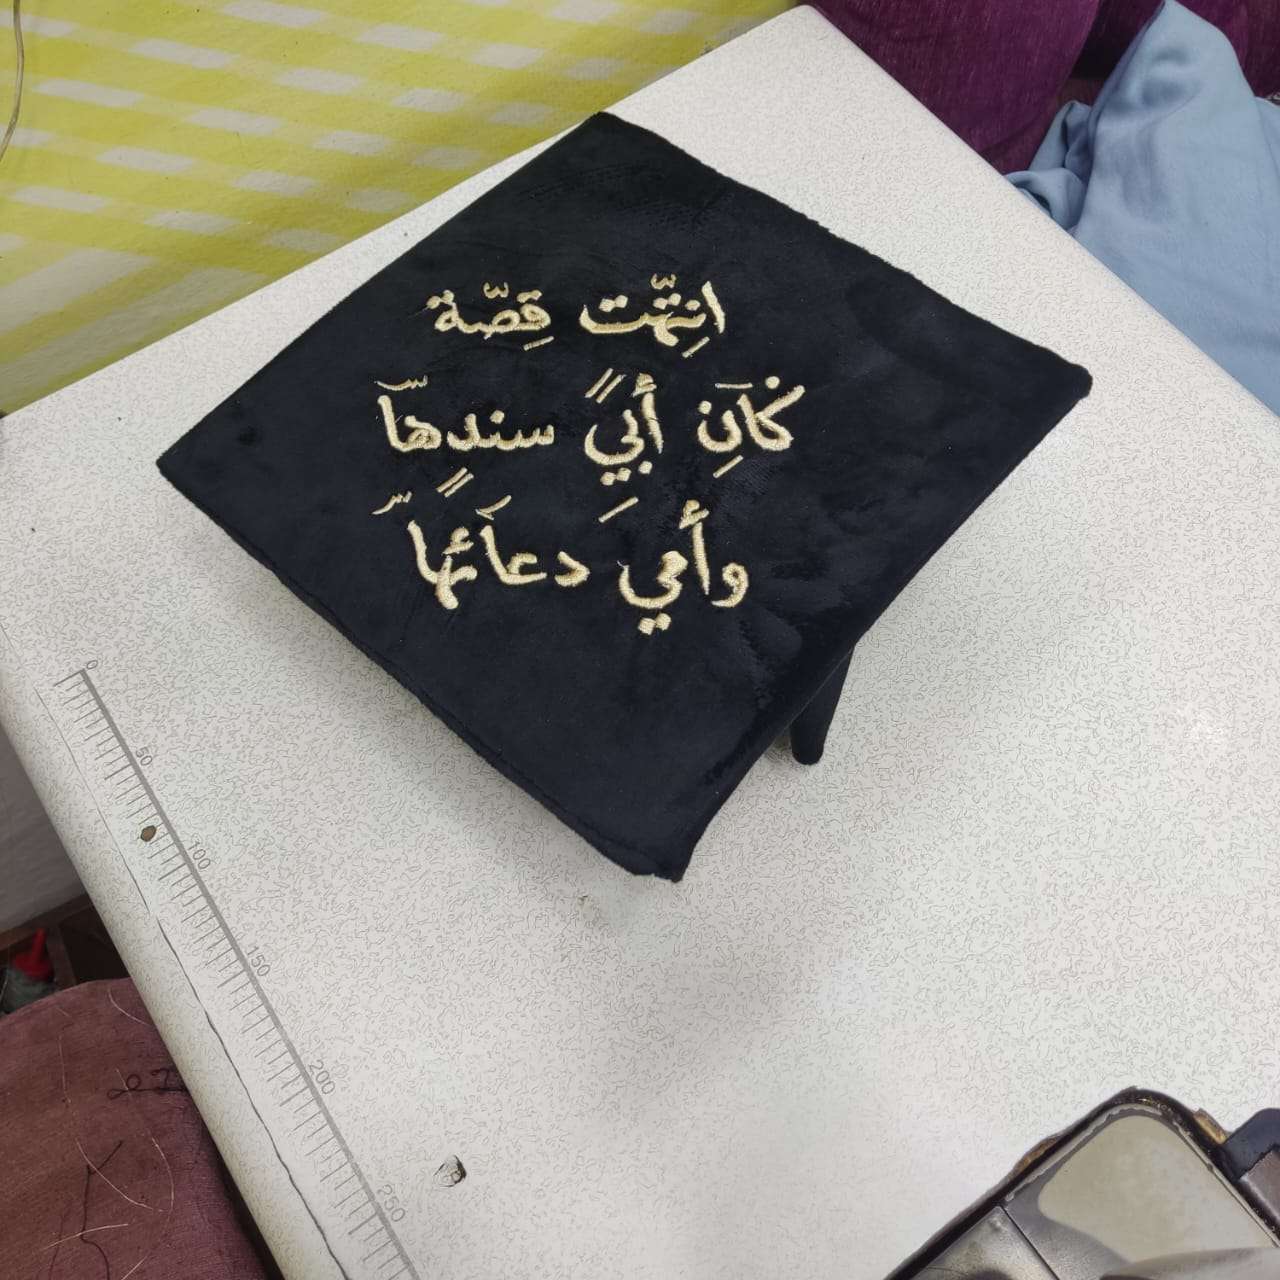 انِتهّت قِصّة
كاَنِ أبيِ سندِهاّ
وأمي دعاَئها
0
50
100
150
200
250